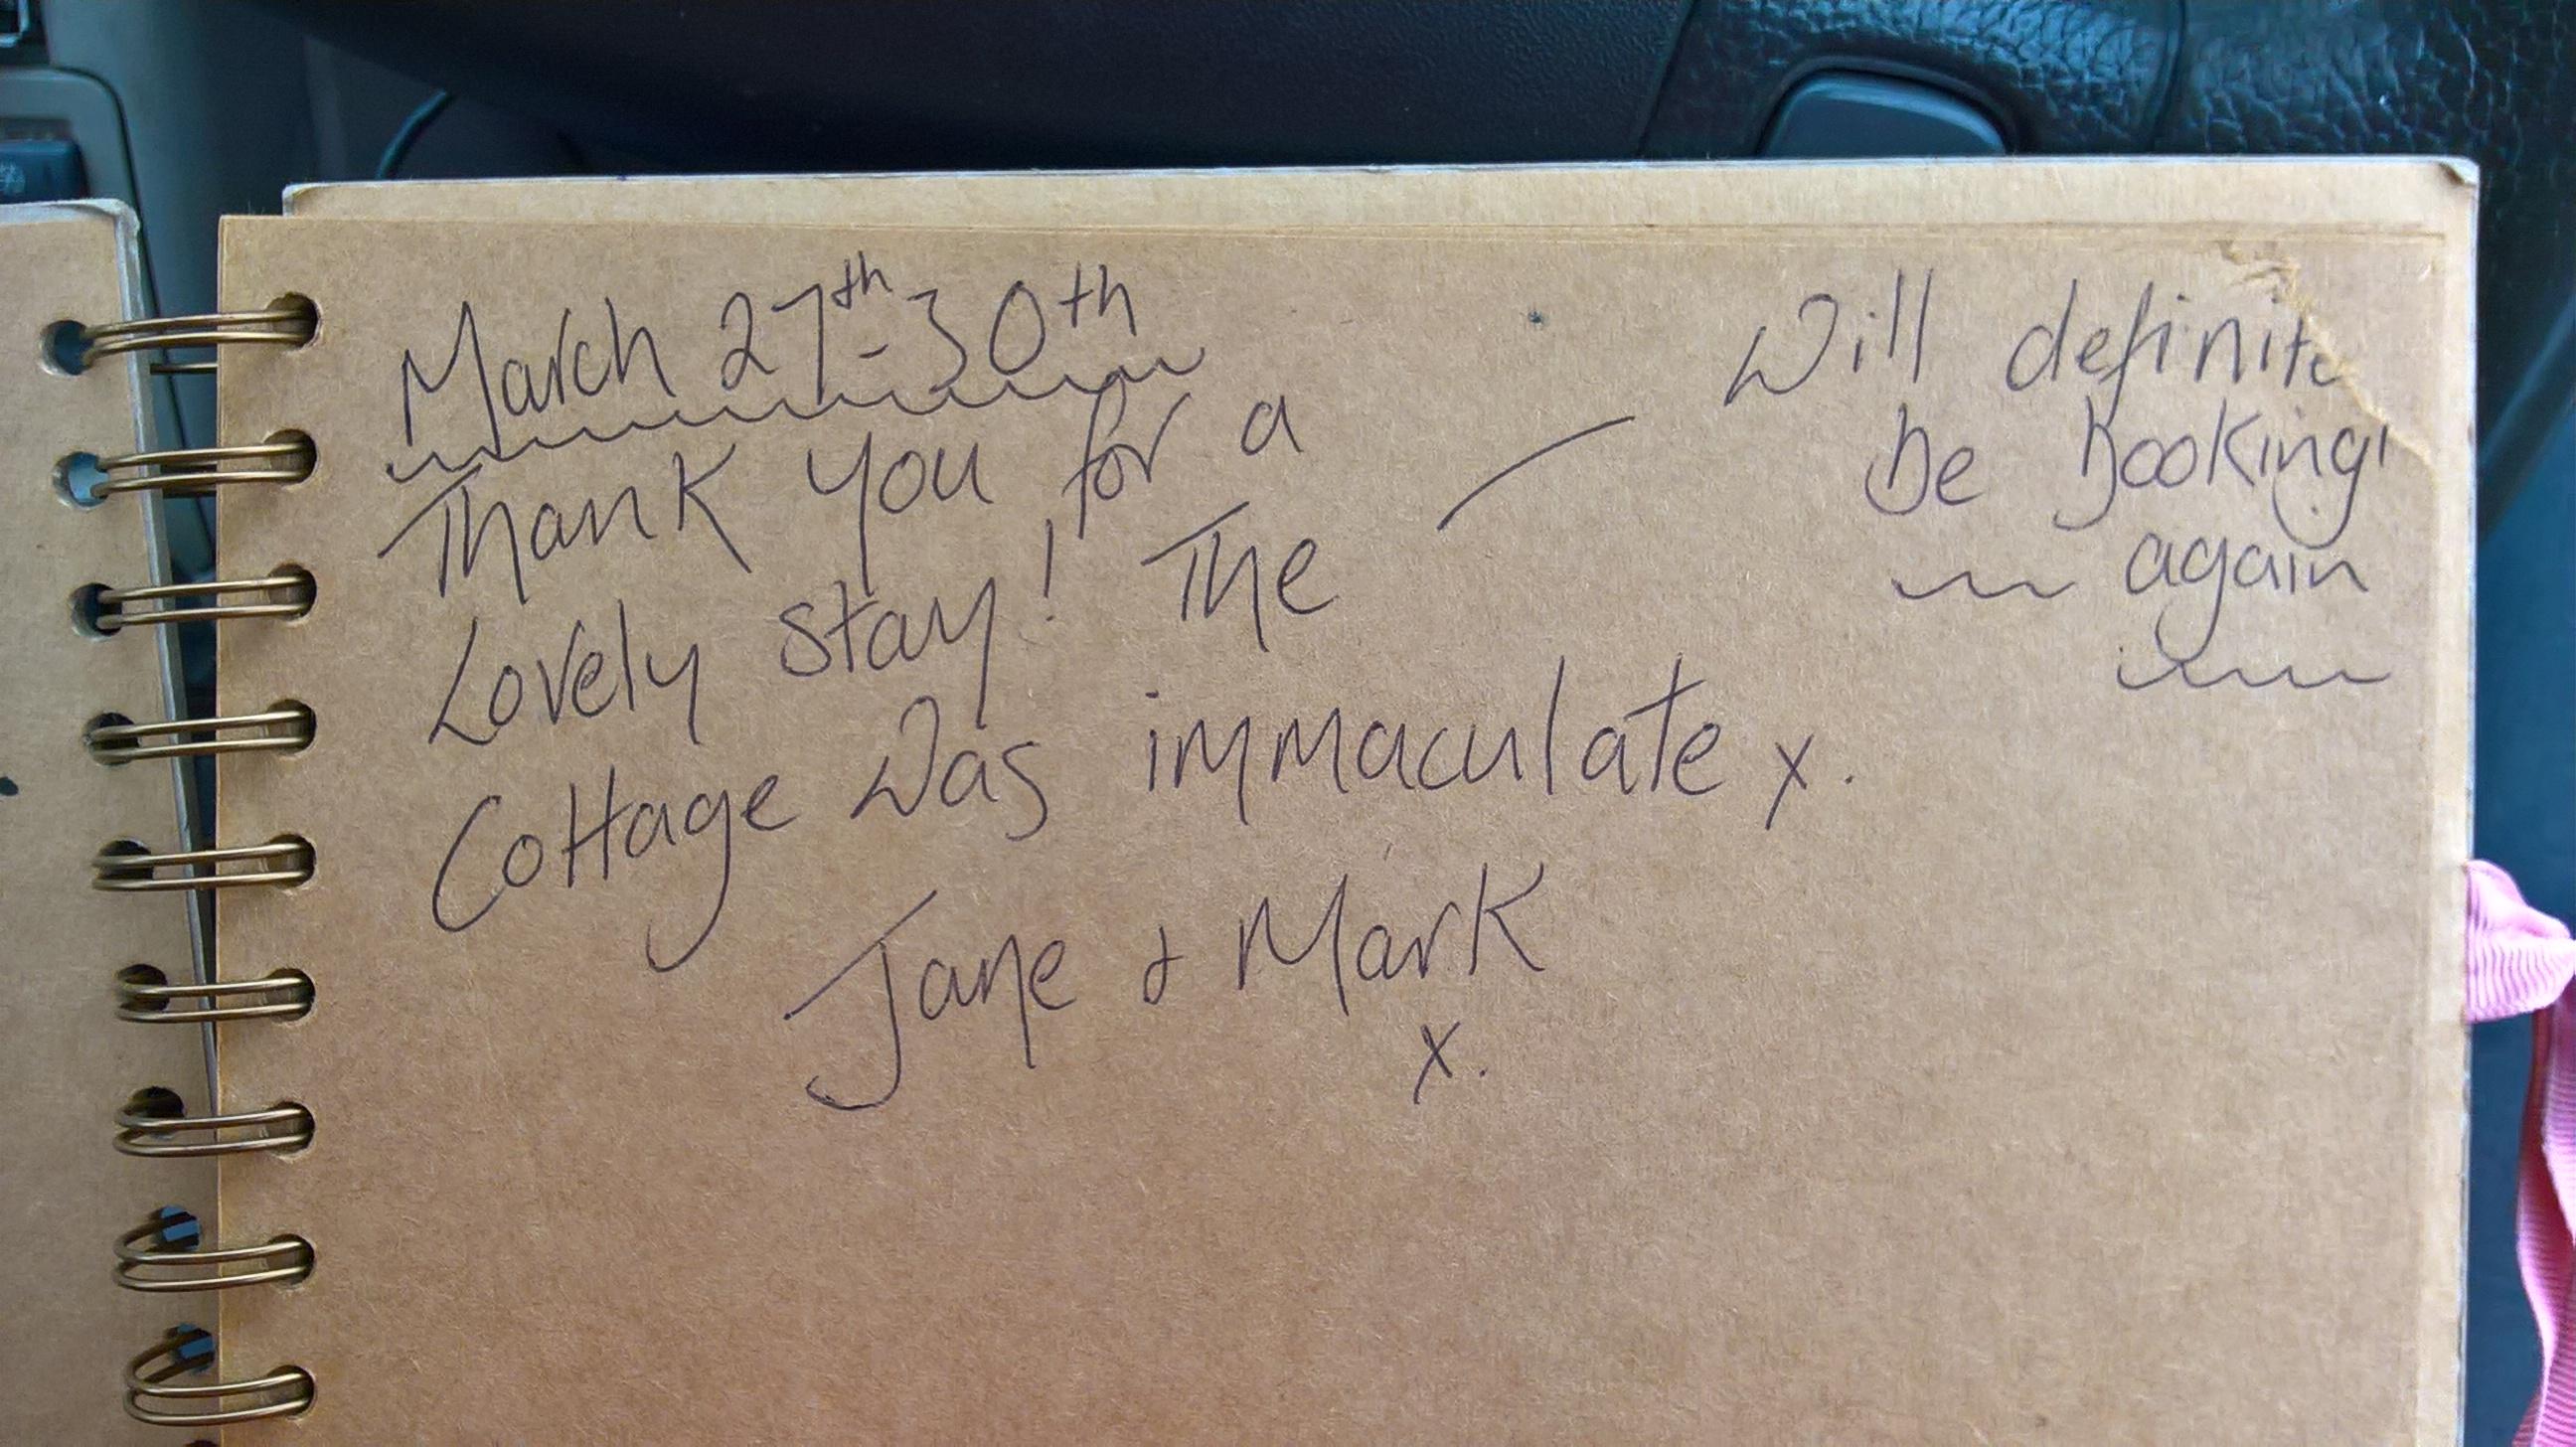 March 27th-30th
Thank you for a
Lovely stay! The
Cottage was immaculate x.
Jane & Mark
x.
Will definite
be booking
again